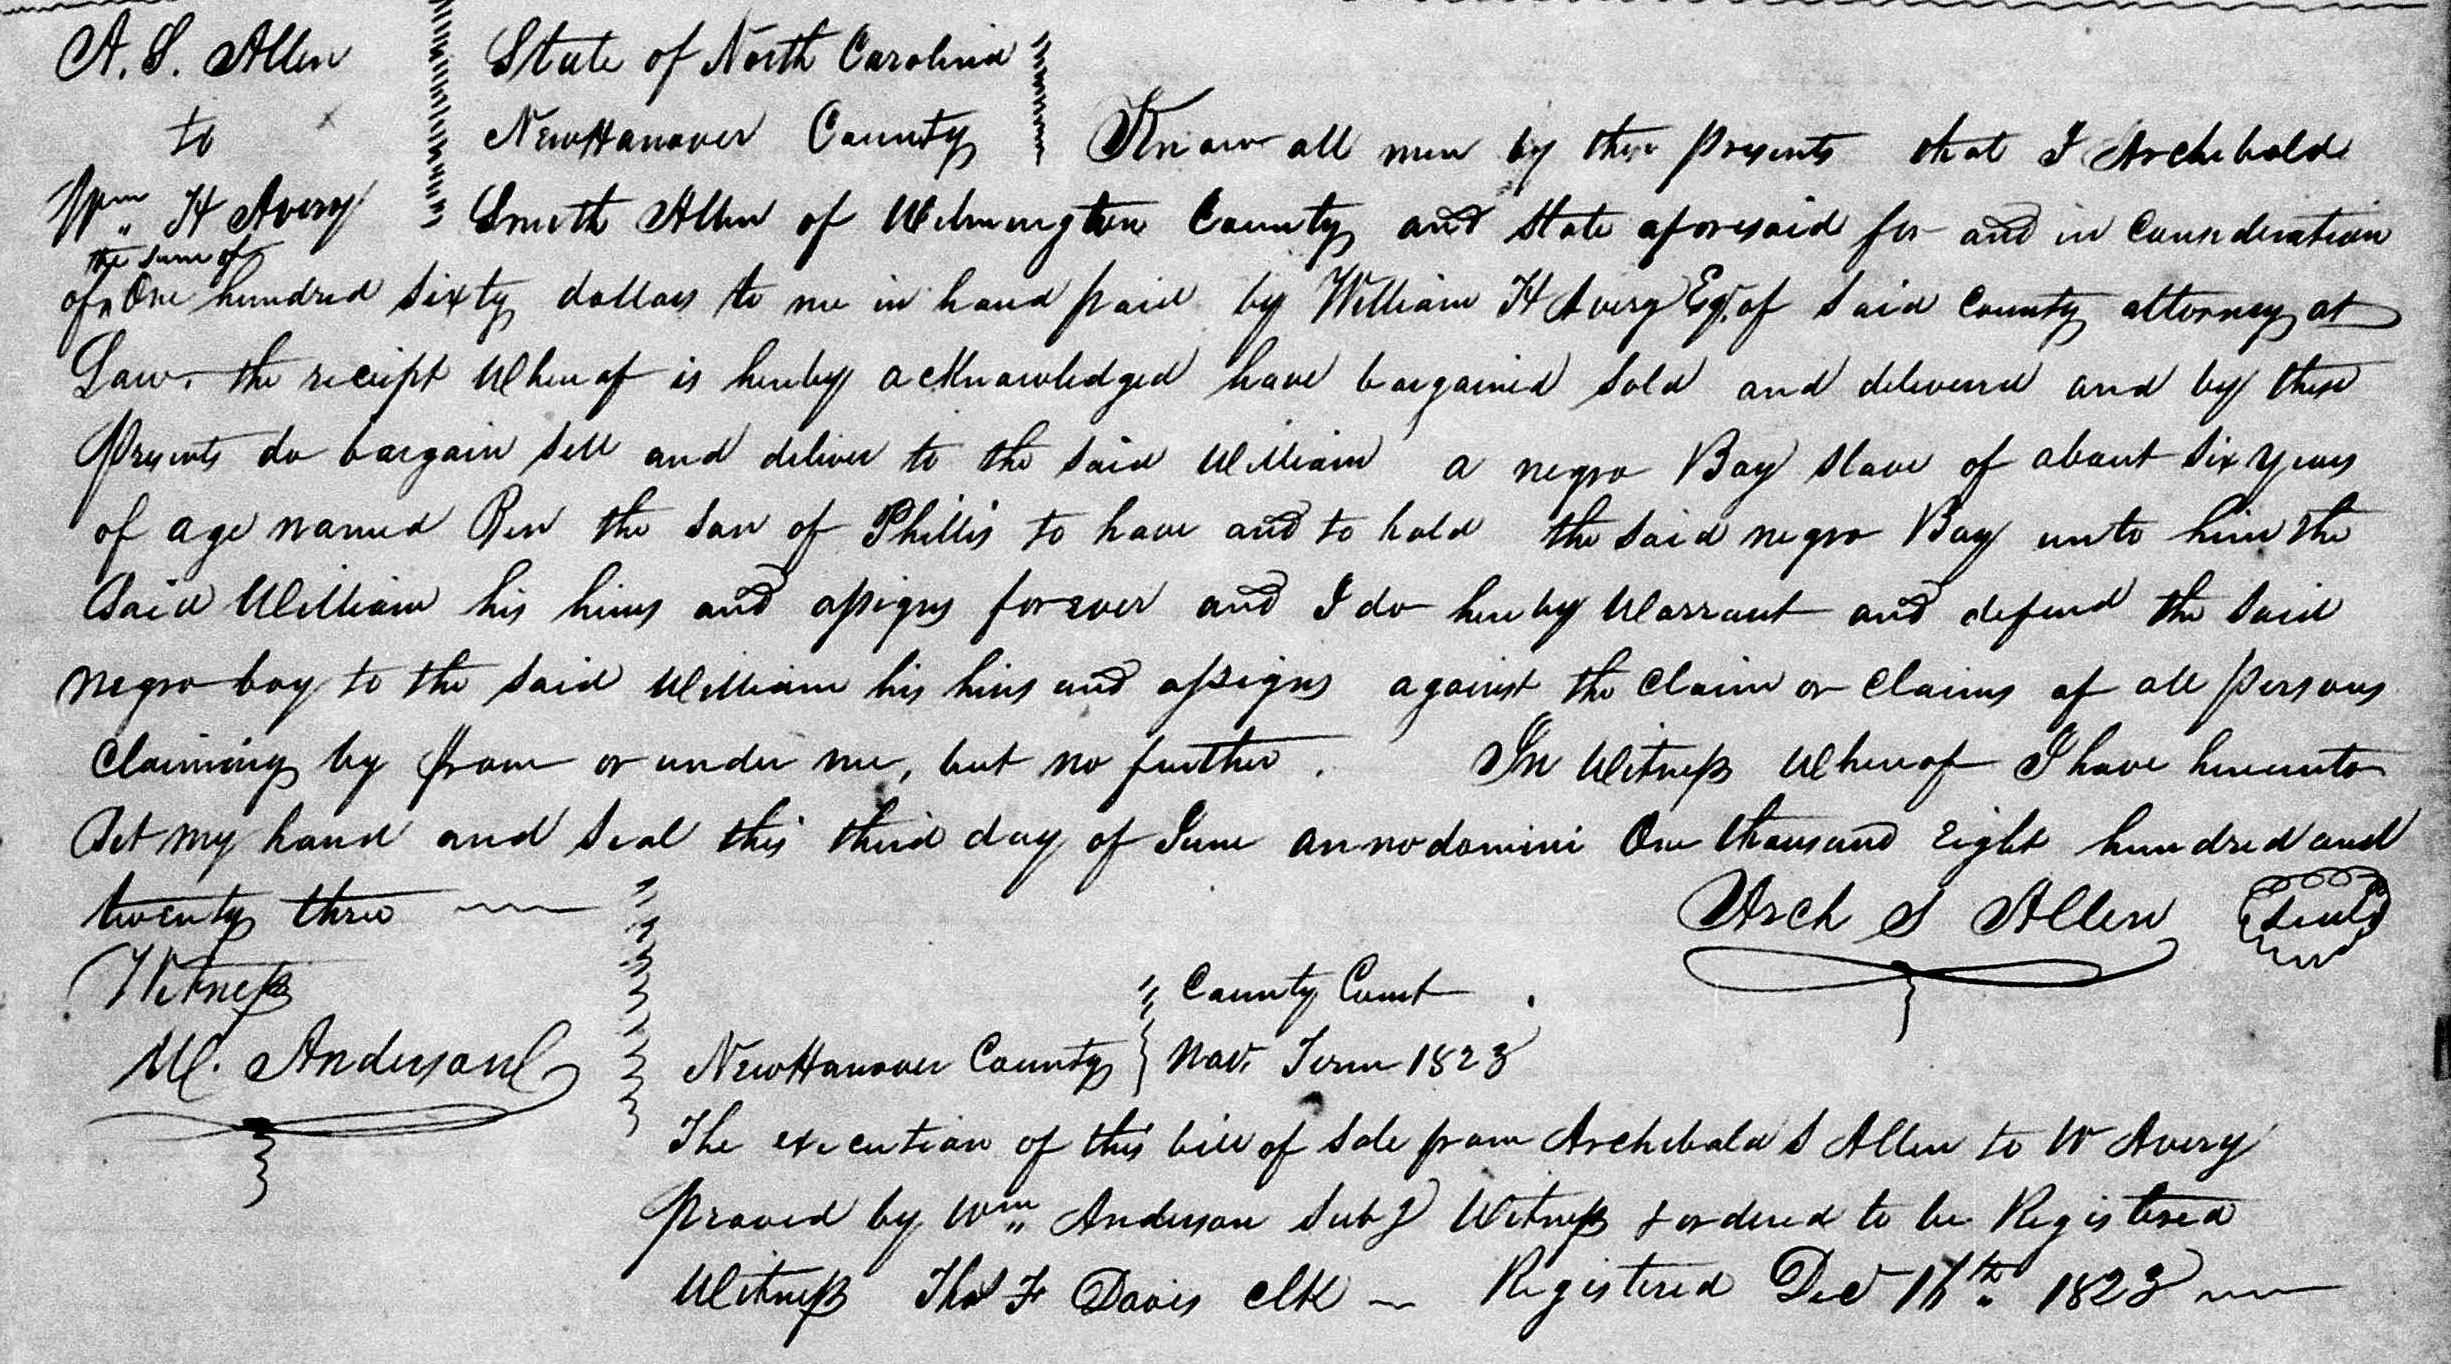 A. S. Allen
to
Wm H Avery
State of North Carolina
New Hanover County
Know all men by these presents that I Archibald
Smith Allen of Wilmington County and State aforesaid for and in consideration
of the sum of One hundred sixty dollars to me in hand paid by William H Avery Esq. of said County attorney at
Law. the receipt Whereof is hereby acknowledged have bargained sold and delivered and by these
presents do bargain sell and deliver to the said William a negro Boy slave of about six years
of age named Ben the son of Phillis to have and to hold the said negro Boy unto him the
Said William his heirs and assigns forever and I do hereby Warrant and defend the said
negro boy to the said William his heirs and assigns against the claim or claims of all persons
claiming by from or under me, but no further. In Witness Whereof I have hereunto
Set my hand and seal this third day of June annodomini One thousand Eight hundred and
twenty three
Arch S Allen Seal
Witness
W. Anderson
County Court
New Hanover County Nov. Term 1823
The execution of this bill of sale from Archibald S Allen to W Avery
proved by Wm Anderson Subg Witness & ordered to be Registered
Witness Thos F Davis Clk Registered Dec 16th 1823